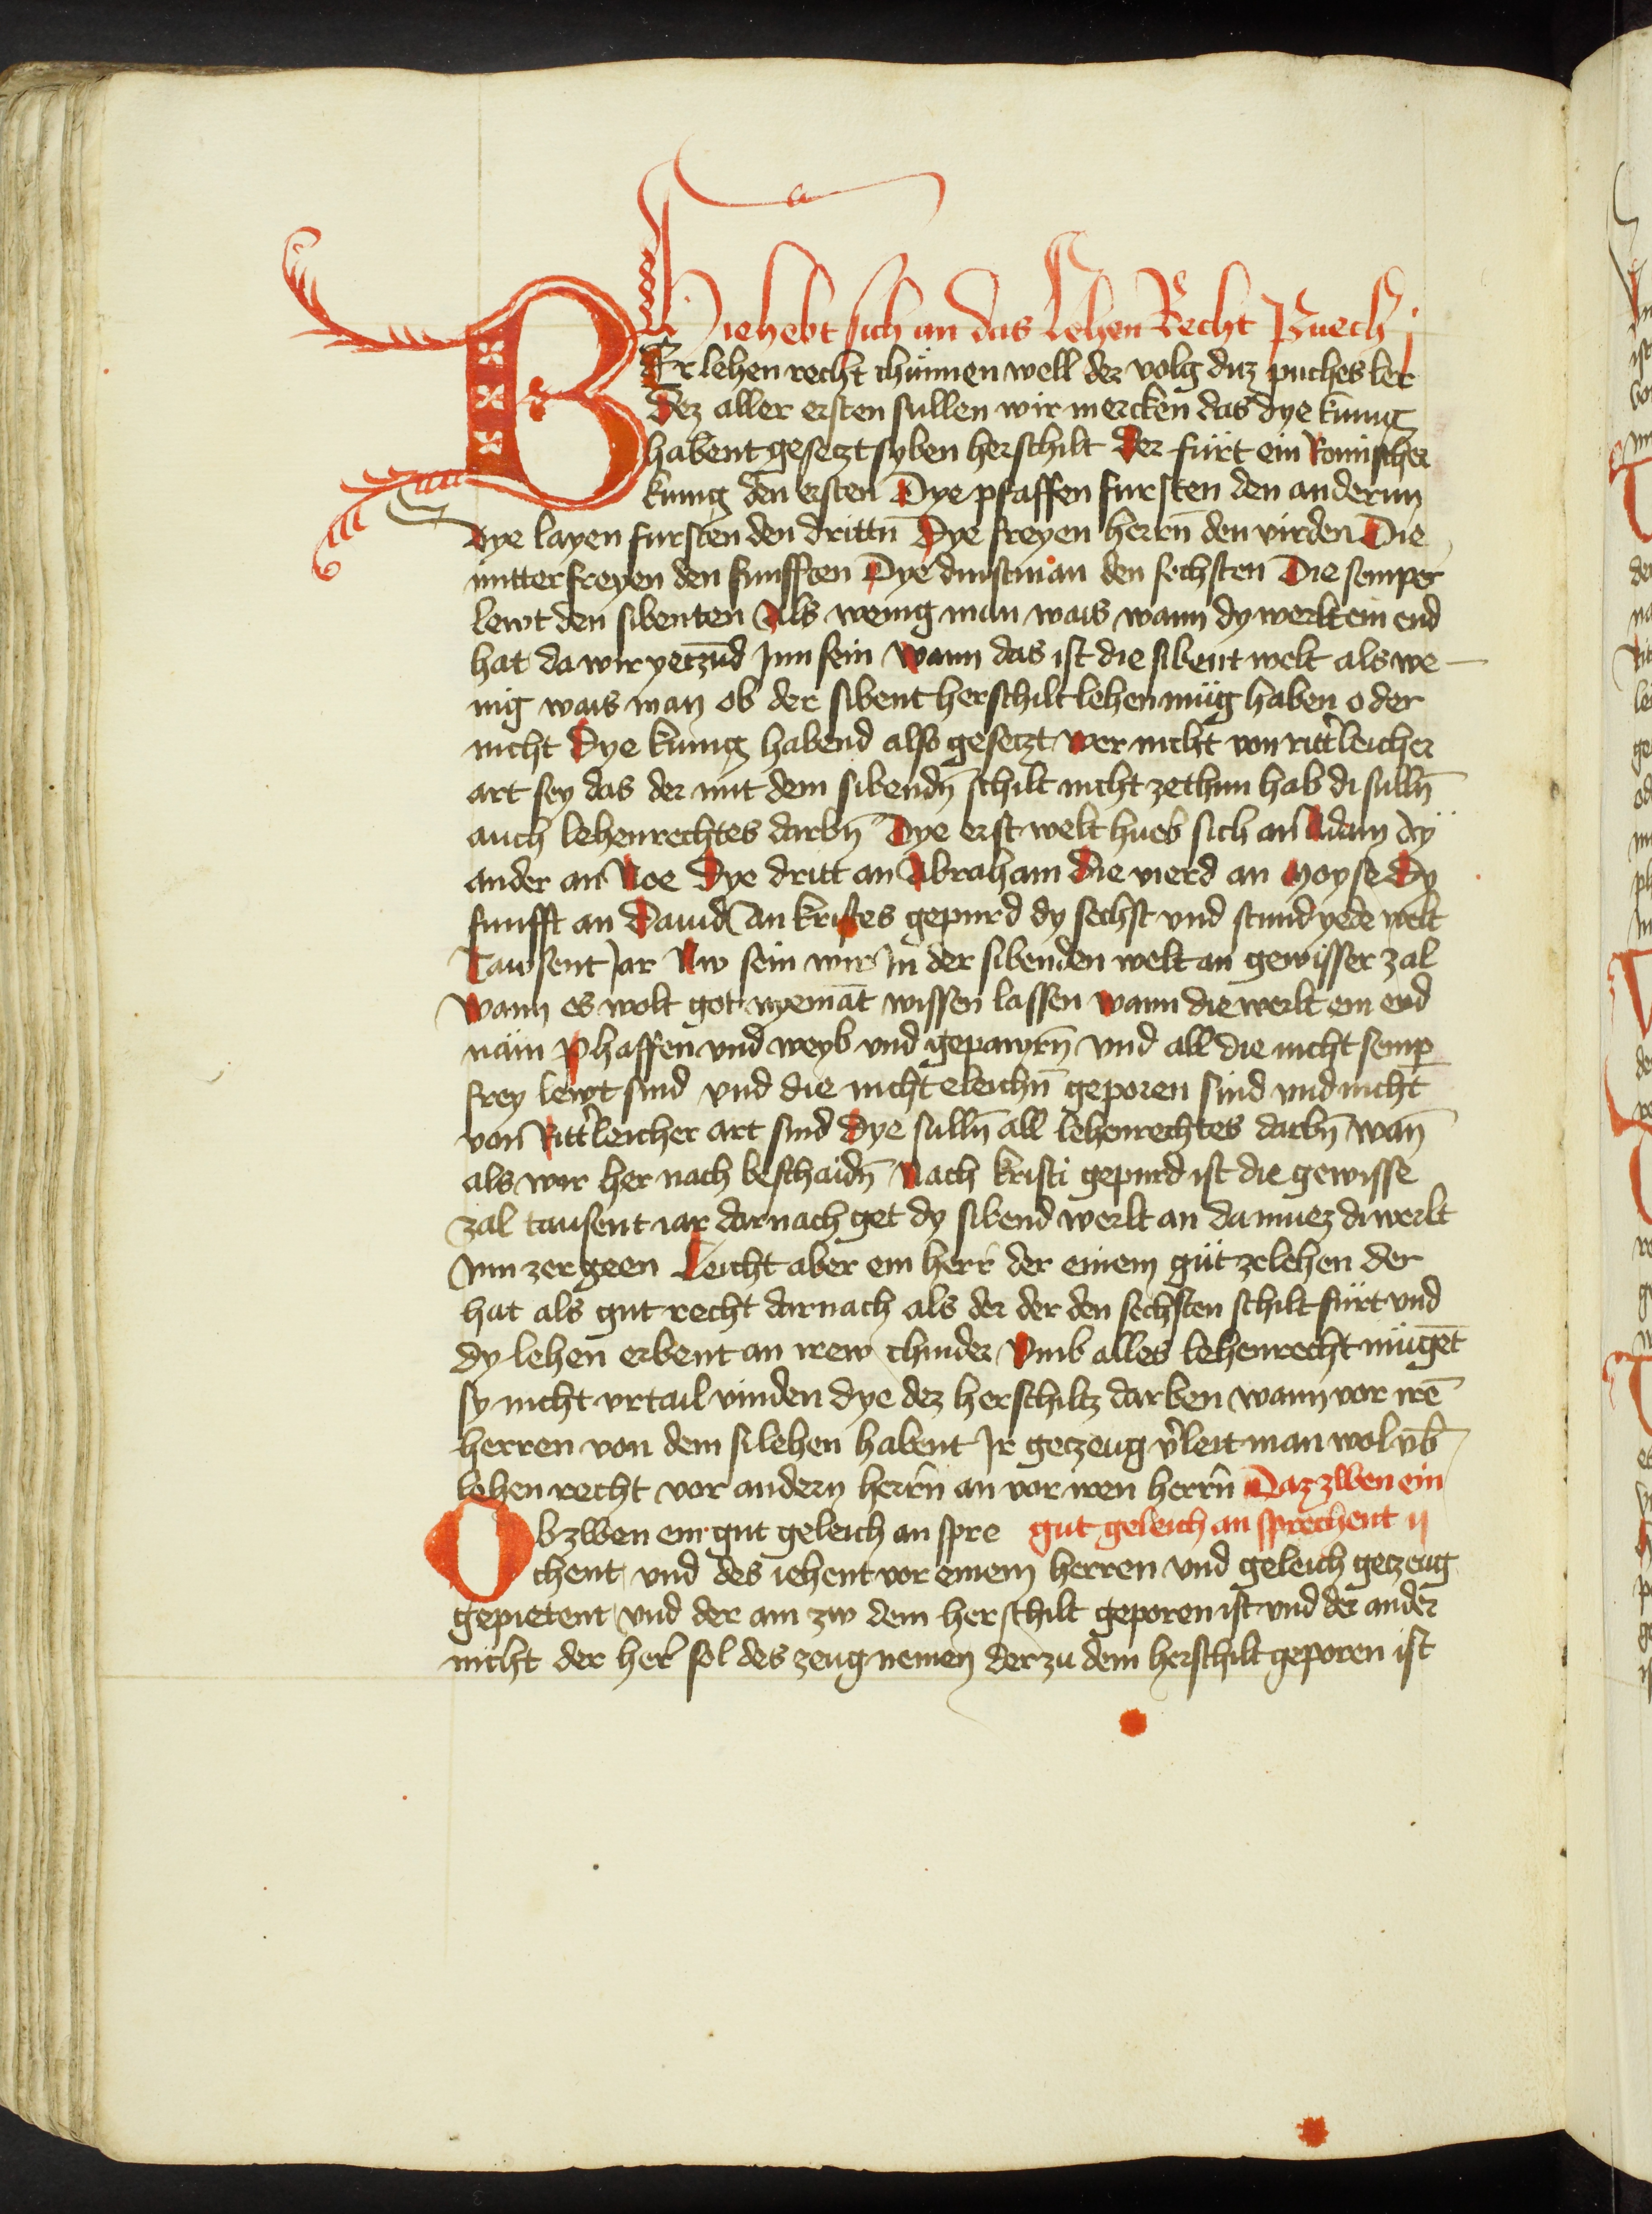 Hie hebt sich an das Lehen Recht Puech j
WEr lehen recht chünnen well der volg ditz puches ler
Dez aller ersten sullen wir mercken das dye kunig
habent gesetzt syben herschilt Der fürt ein Romischer
kunig den ersten Dye pfaffen fursten den andernn
Dye layen fursten den drittn̄ Dye freyen herrn̄ den virden Die
mitterfreyen den funfften Dye dinstman den sechsten Die semper
lewt den sibenten Als wenig man wais wann dy werlt ein end
hat da wir yetzūd Inn sein Wann das ist die sibent welt als we
nig wais man ob der sibent herschilt lehen müg haben oder
nicht Dye kunig habend also gesetzt wer nicht von ritt̾leicher
art sey das der mit dem sibendn̄ schilt nicht zethun hab di sulln̄
auch lehenrechtes darbn̄ Dye erst welt hueb sich an Adam dÿ
ander an Noe Dye dritt an Abraham Die vierd an Moyse Dy
funfft an Dauid An kristes gepurd dy sechst vnd stund yede welt
Tawsent Jar Nw sein wir In der sibenden welt an gewisser zal
Wann es wolt got nyemāt wissen lassen wann die werlt ein end
näm Phaffen vnd weyb vnd gepawrn̄ vnd all die nicht semp̲
frey lewt sind vnd die nicht eleichn̄ geporen sind vnd nicht
von Ritt̾leicher art sind Dye sulln̄ all lehenrechtes darbn̄ wan̄
als wir her nach beschaidn̄ Nach kristi gepurd ist die gewisse
zal tausent iar darnach get dy sibend werlt an da muez di werlt
Inn zergeen Leicht aber ein herr der einem güt ze lehen der
hat als gut recht darnach als der der den sechsten schilt fürt vnd
dy lehen erbent an irew chinder Vmb alles lehenrecht mügēt
sy nicht vrtail vinden dye dez herschiltz darben wann vor irē
herren von dem si lehen habent Ir getzeug v̾leit man wol vm̄b
lehen recht vor andern herrn̄ an vor iren herrn̄ Daz zwen ein
Ob zwen ein gut geleich an spre gut geleich an sprechent ij
chent vnd des iehent vor einem herren vnd geleich getzeug
gepietent vnd der ain zw dem herschilt geporen ist vnd der ander
nicht der her̄ sol des zeug nemen der zu dem herschilt geporen ist